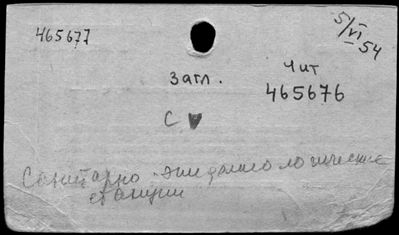 465677
5/VI 54
Загл.
Чит
465676
С
Санитарно-эпидемиологические
станции